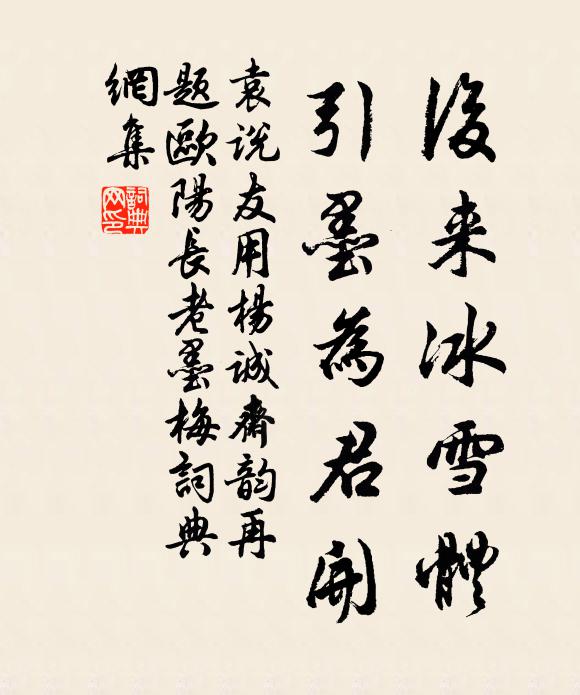 後来冰雪體
引墨為君開
袁说友用楊诚齋韵再
题歐陽長老墨梅詞典
網集
詞典網印